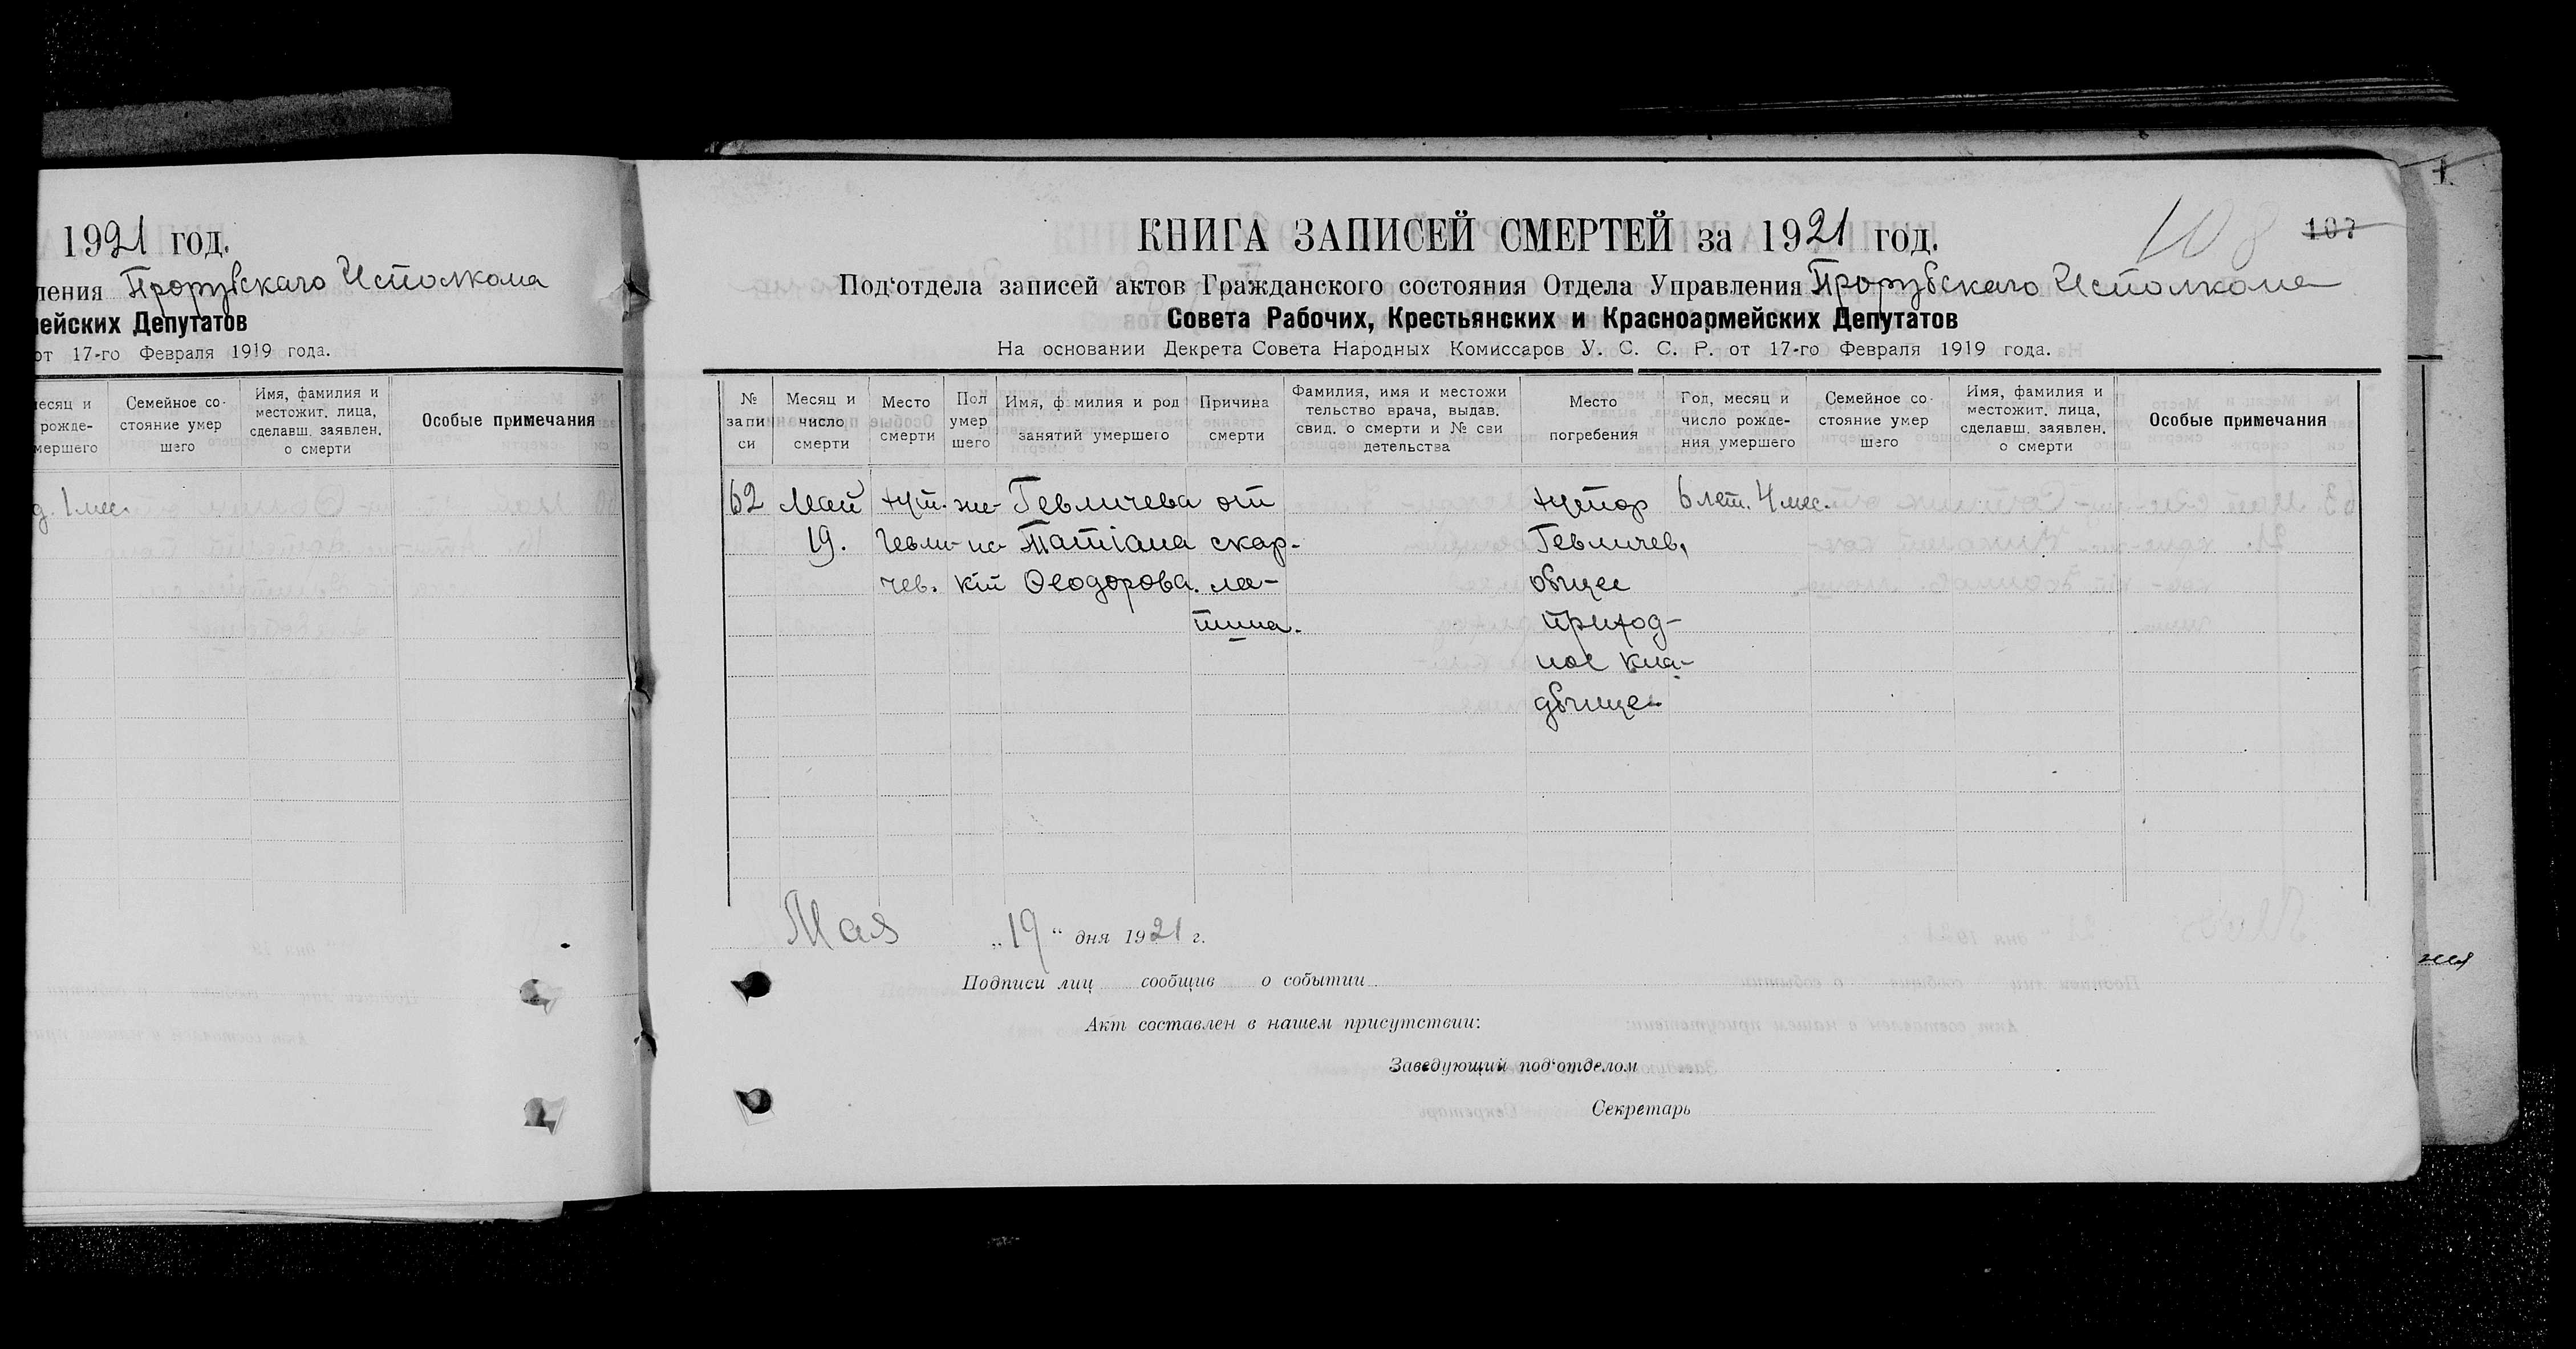 1921 год.
ления Прорубскаго Исполкома
мейских Депутатов
от 17-го Февраля 1919 года.
месяц и
рожде-
умершего
Семейное со-
стояние умер
шего
Имя, фамилия и
местожит. лица,
сделавш. заявлен.
о смерти
Особые примечания
д. 1 мес.
КНИГА ЗАПИСЕЙ СМЕРТЕЙ за 1921 год.
108
107
Под'отдела записей актов Гражданского состояния Отдела Управления Прорубскаго Исполкома
Совета Рабочих, Крестьянских и Красноармейских Депутатов
На основании Декрета Совета Народных Комиссаров У. С. С. Р. от 17-го Февраля 1919 года.
№
запи
си
Месяц и
число
смерти
Место
смерти
Пол
умер
шего
Имя, ф милия и род
занятий умершего
Причина
смерти
Фамилия, имя и местожи
тельство врача, выдав.
свид. о смерти и № сви
детельства
Место
погребения
Год, месяц и
число рожде-
ния умершего
Семейное со-
стояние умер
шего
Имя, фамилия и
местожит. лица,
сделавш. заявлен.
о смерти
Особые примечания
62 Май хут. же- Гевличева от хутор 6 лет. 4 мес.
19. Гевли- нс- Татіана скар- Гевличев,
чев. кій Ѳеодорова. ла- общее
тина. приход-
ное кла-
дбище.
Мая „19“ дня 1921 г.
Подписи лиц сообщив о событии
Акт составлен в нашем присутствии:
Заведующий под'отделом
Секретарь
1.